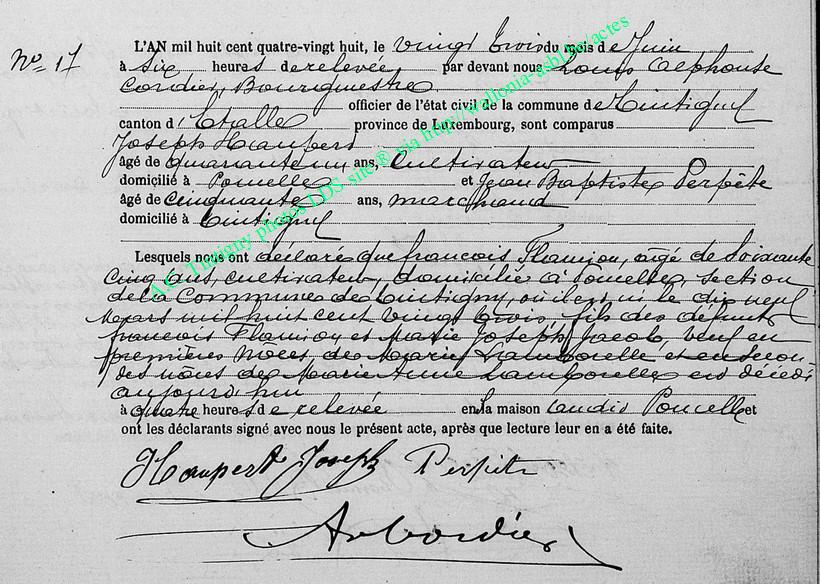 No 17
L'AN mil huit cent quatre-vingt huit, le vingt trois du mois de Juin
à six heures de relevée par devant nous Louis Alphonse
Cordier, Bourgmestre
officier de l'état civil de la commune de Tintigny
canton d'Etalle province de Luxembourg, sont comparus
Joseph Haupert
âgé de quarante un ans, Cultivateur
domicilié à Poncelle et Jean Baptiste Perpète
âgé de cinquante ans, marchand
domicilié à Tintigny
Lesquels nous ont déclaré que francois Flamion, agé de Soixante
cinq ans, cultivateur, domicilié à Poncelle, section
de la Commune de Tintigny, où il est né le dix neuf
Mars mil huit cent vingt trois, fils des défunts
francois Flamion et Marie Joseph Jacob, veuf en
premières nôces de Marie Lamborelle et en secon-
des nôces de Marie Anne Lamborelle est décédé
aujourd'hui
à quatre heures de relevée en sa maison audit Poncelle et
ont les déclarants signé avec nous le présent acte, après que lecture leur en a été faite.
Haupert Joseph Perpète
ALCordier
A.C. Tintigny photos LDS site ® via http://wallonia-asbl.be/actes